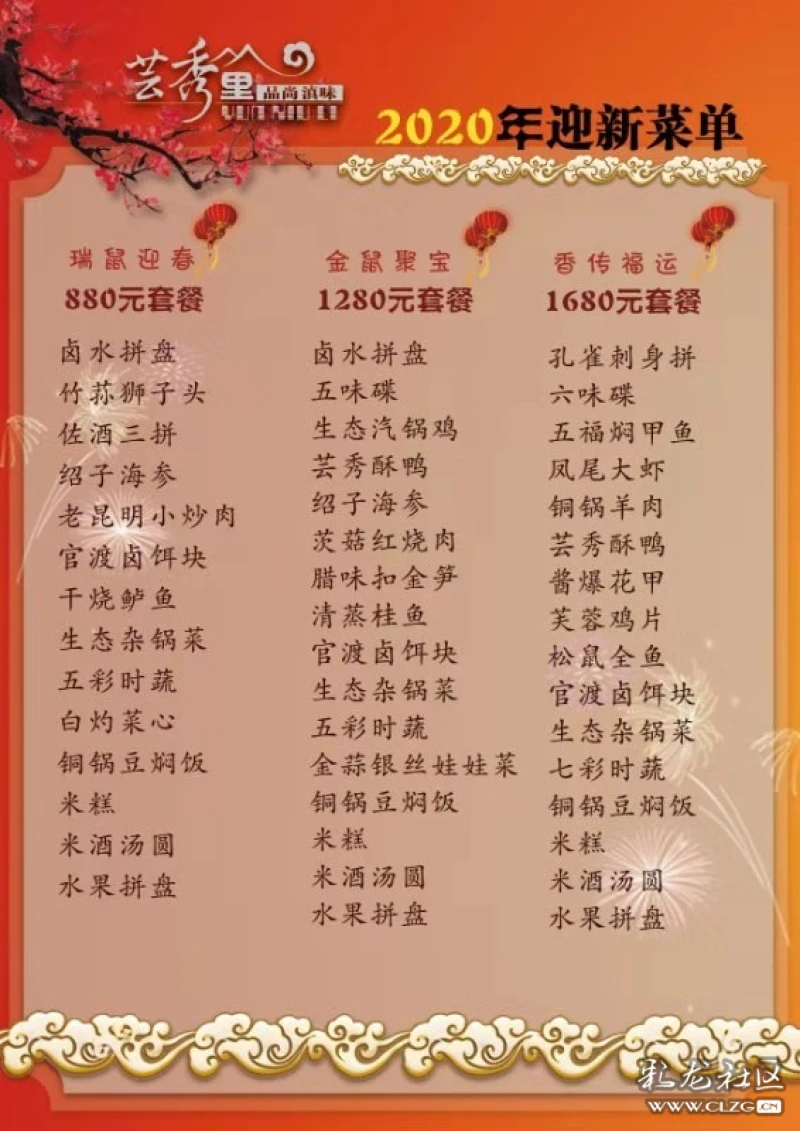 芸秀里
品尚滇味
YUN XIU LI
2020年迎新菜单
瑞鼠迎春
880元套餐
卤水拼盘
竹荪狮子头
佐酒三拼
绍子海参
老昆明小炒肉
官渡卤饵块
干烧鲈鱼
生态杂锅菜
五彩时蔬
白灼菜心
铜锅豆焖饭
米糕
米酒汤圆
水果拼盘
金鼠聚宝
1280元套餐
卤水拼盘
五味碟
生态汽锅鸡
芸秀酥鸭
绍子海参
茨菇红烧肉
腊味扣金笋
清蒸桂鱼
官渡卤饵块
生态杂锅菜
五彩时蔬
金蒜银丝娃娃菜
铜锅豆焖饭
米糕
米酒汤圆
水果拼盘
香传福运
1680元套餐
孔雀刺身拼
六味碟
五福焖甲鱼
凤尾大虾
铜锅羊肉
芸秀酥鸭
酱爆花甲
芙蓉鸡片
松鼠全鱼
官渡卤饵块
生态杂锅菜
七彩时蔬
铜锅豆焖饭
米糕
米酒汤圆
水果拼盘
彩龙社区
WWW.CLZG.CN